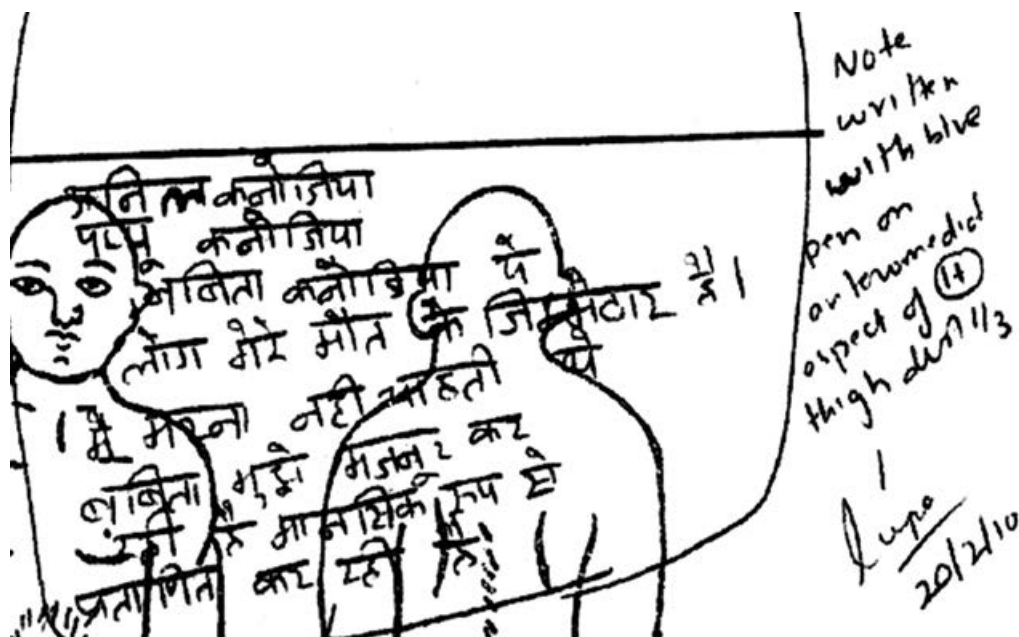 अनिल कनोजिया
पुष्पा कनोजिया
बबिता कनोजिया ये
लोग मेरे मौत के जिम्मेदार है।
मै मरना नही चाहती पे
बबिता मुझे मजबुर कर
रही है मानसिक रूप से
प्रताणित कर रही है
Note
written
with blue
pen on
anteromedial
aspect of lt
thigh dist 1/3
20/2/10